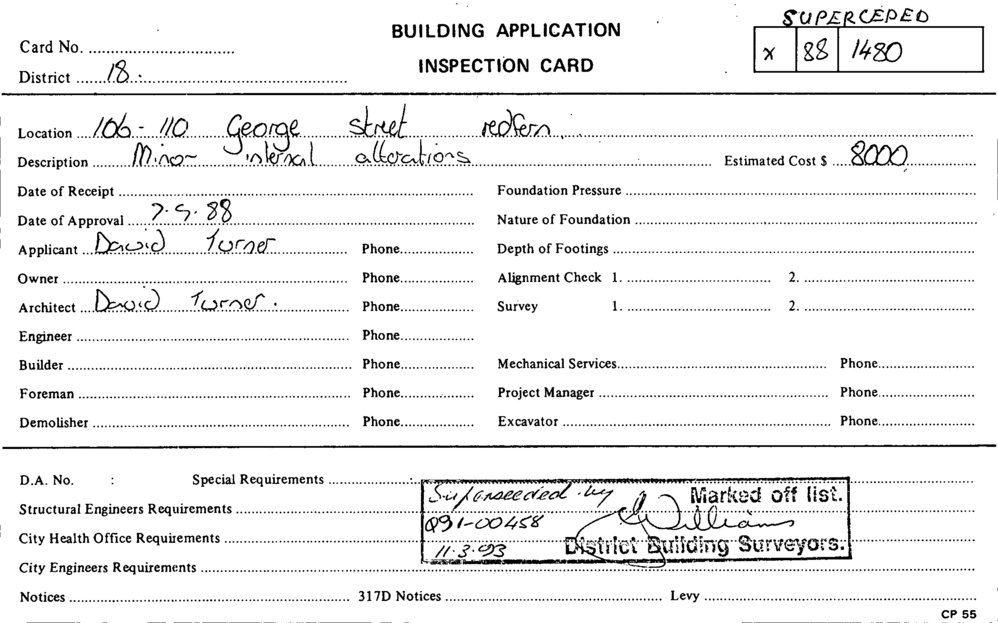 SUPERCEPED
BUILDING APPLICATION
INSPECTION CARD
x 88 1480
Card No.
District 18
Location 106-110 George street redfern
Description Minor internal alterations Estimated Cost $ 8000
Date of Receipt Foundation Pressure
Date of Approval 7.9.88 Nature of Foundation
Applicant David Turner Phone Depth of Footings
Owner Phone Alignment Check 1. 2.
Architect David Turner. Phone Survey 1. 2.
Engineer Phone
Builder Phone Mechanical Services Phone
Foreman Phone Project Manager Phone
Demolisher Phone Excavator Phone
D.A. No. : Special Requirements
Superseeded by Marked off list.
Structural Engineers Requirements
Q91-00458 Williams
City Health Office Requirements
11.3.93 District Building Surveyors.
City Engineers Requirements
Notices 317D Notices Levy
CP 55